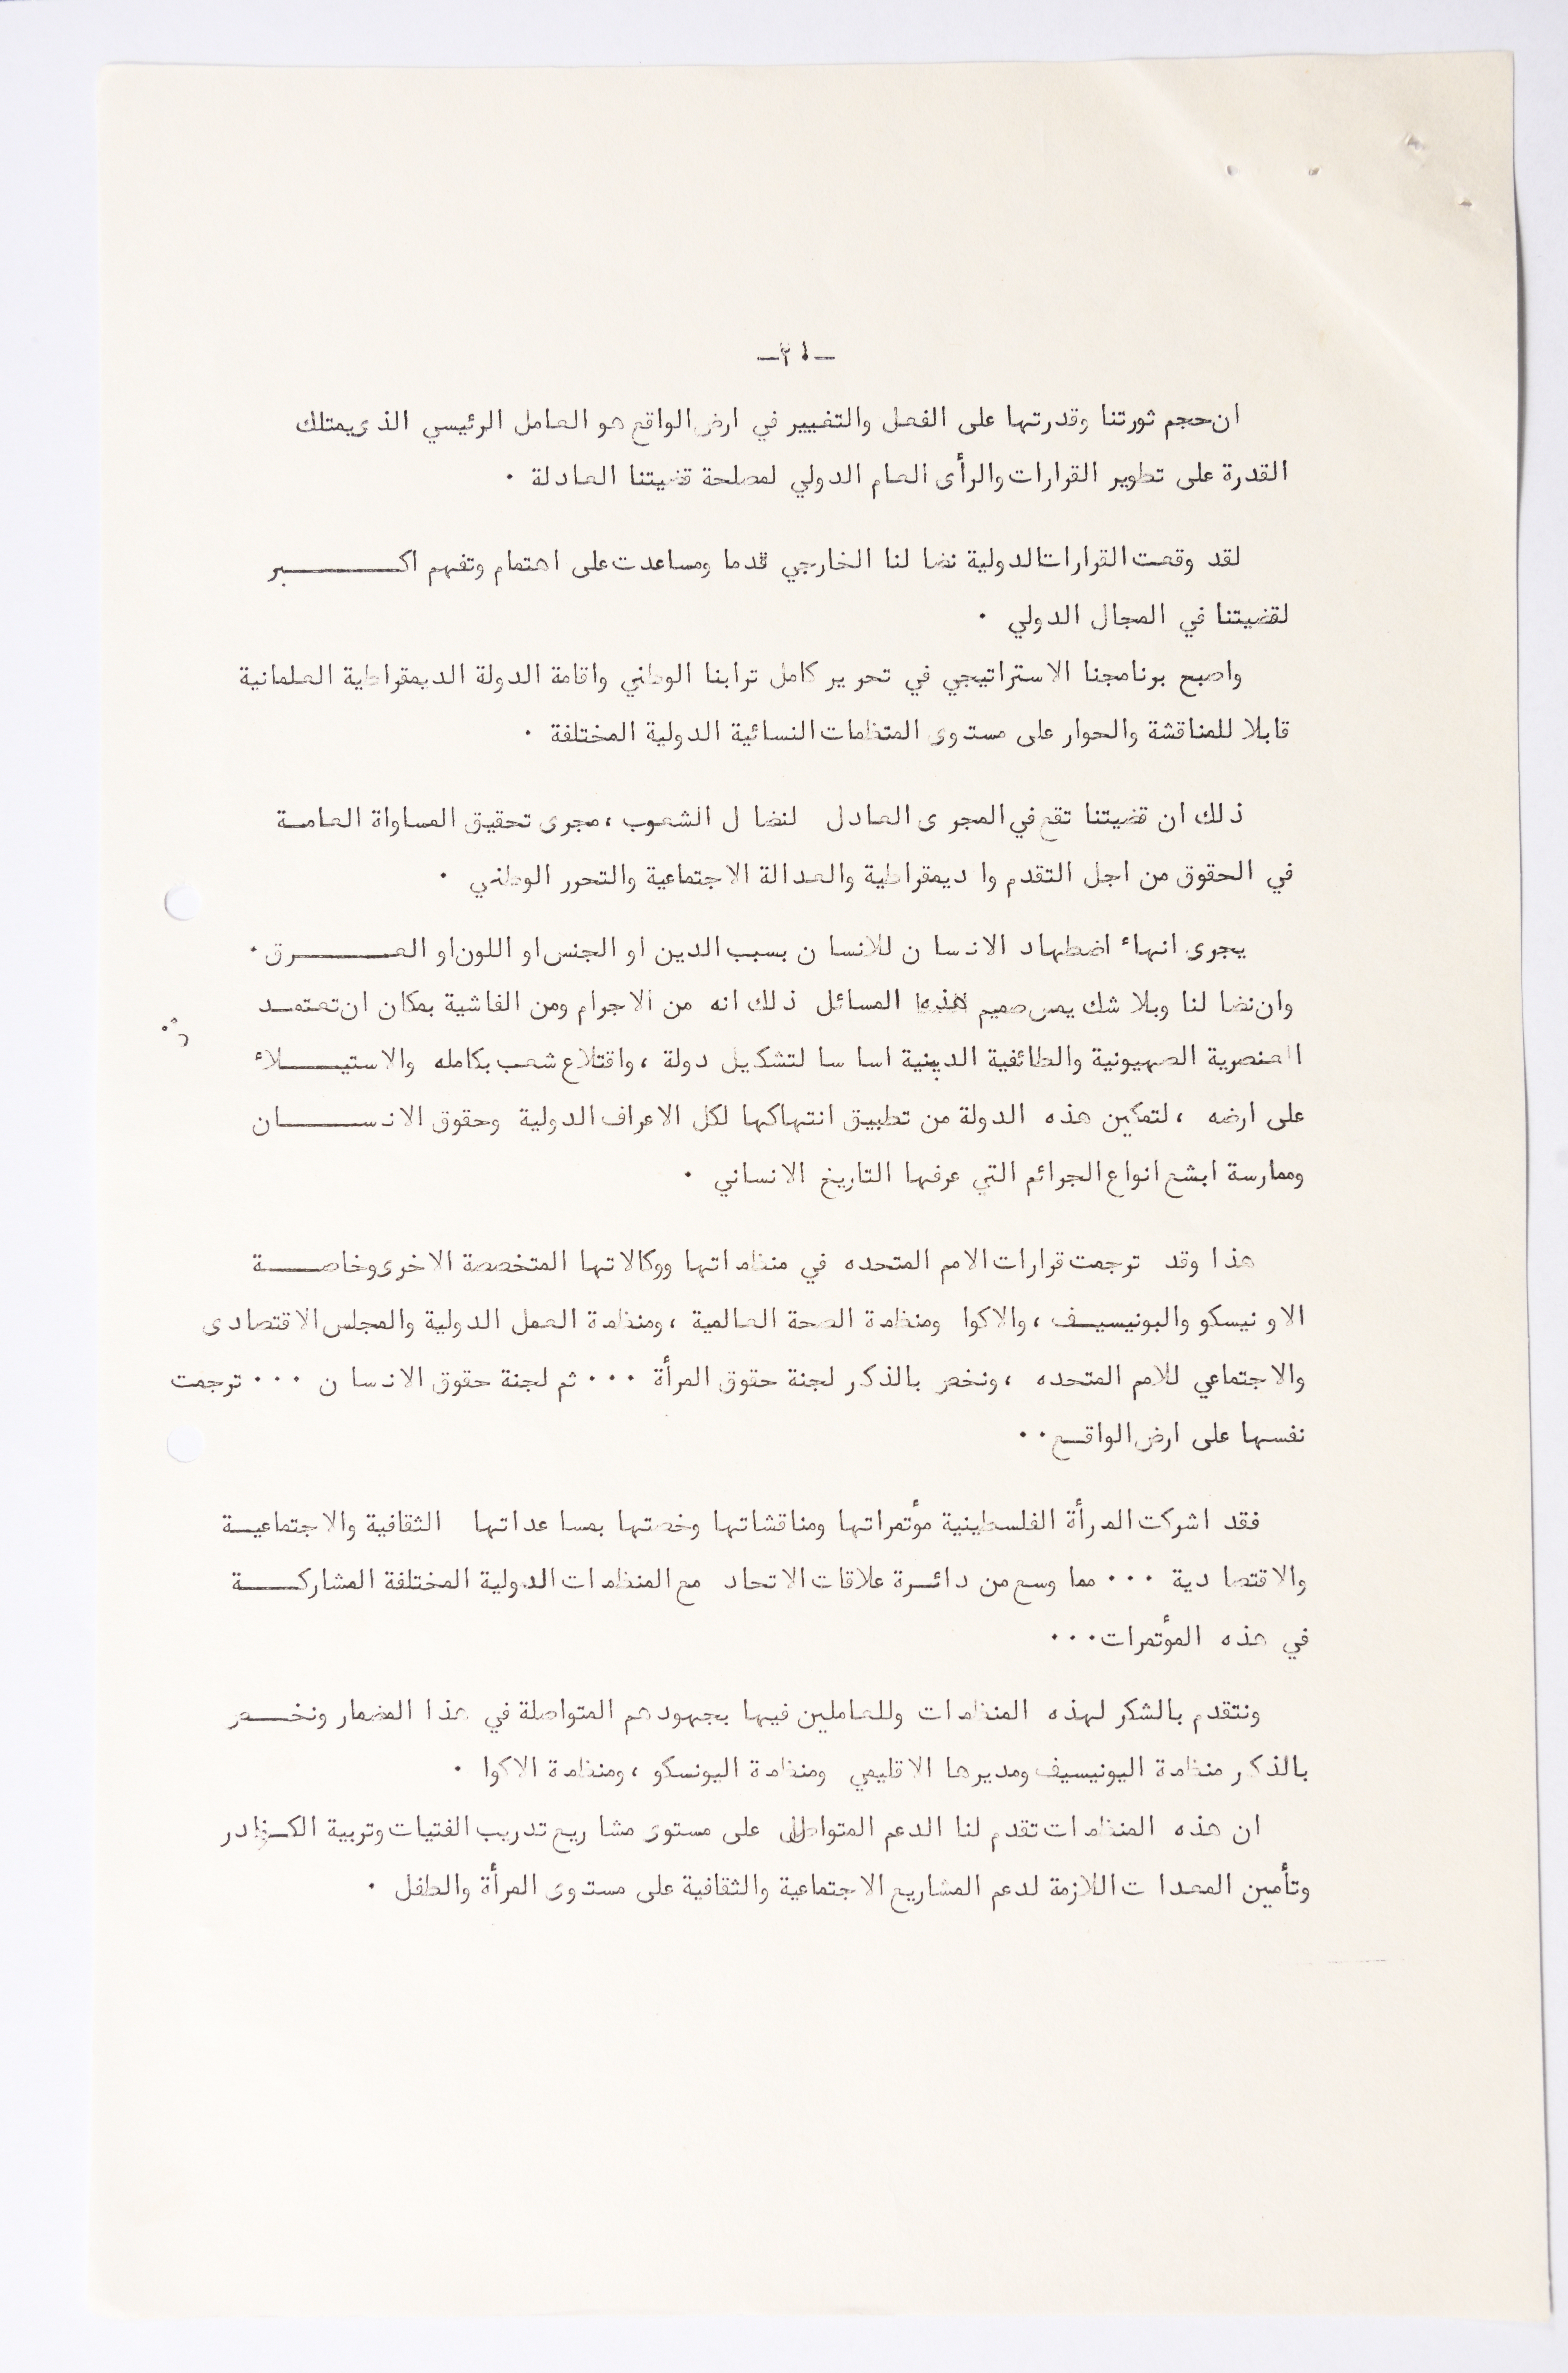 ان حجم ثورتنا وقدرتها على الفعل والتغيير في ارض الواقع هو العامل الرئيسي الذى يمتلك
القدرة على تطوير القرارات والرأى العام الدولي لمصلحة قضيتنا العادلة .
لقد وقعت القرارات الدولية نضا لنا الخارجي قدما ومساعدت على اهتمام وتفهم اكـــــــــبر
لقضيتنا في المجال الدولي .
واصبح برنامجنا الاستراتيجي في تحرير كامل ترابنا الوطني واقامة الدولة الديمقراطية العلمانية
قابلا للمناقشة والحوار على مستوى المتظمات النسائية الدولية المختلفة .
ذلك ان قضيتنا تقع في المجرى العادل لنضا ل الشعوب ، مجرى تحقيق المساواة العامـة
في الحقوق من اجل التقدم وا ديمقراطية والعدالة الاجتماعية والتحرر الوطني .
يجرى انهاء اضطهاد الانسا ن للانسا ن بسبب الدين او الجنس او اللون او العـــــــرق .
وان نضا لنا وبلا شك يمس صميم هذه المسائل ذلك انه من الاجرام ومن الفاشية بمكان ان تعتمـد
العنصرية الصهيونية والطائفية الدينية اسا سا لتشكيل دولة ، واقتلاع شعب بكامله والاستيـــــلاء
على ارضه ، لتمكين هذه الدولة من تطبيق انتهاكها لكل الاعراف الدولية وحقوق الانســـــــان
وممارسة ابشع انواع الجرائم التي عرفها التاريخ الانساني .
هذا وقد ترجمت قرارات الامم المتحده في منظماتها ووكالاتها المتخصصة الاخرى وخاصـــــة
الاو نيسكو والبونيسيـف ، والاكوا ومنظمة الصحة العالمية ، ومنظمة العمل الدولية والمجلس الاقتصادى
والاجتماعي للامم المتحده ، ونخص بالذكر لجنة حقوق المرأة ... ثم لجنة حقوق الانسا ن ... ترجمت
نفسها على ارض الواقـع ..
فقد اشركت المرأة الفلسطينية مؤتمراتها ومناقشاتها وخصتها بمسا عداتها الثقافية والاجتماعيـة
والاقتصا دية ... مما وسع من دائـرة علاقات الاتحاد مع المنظمات الدولية المختلفة المشاركـــــة
في هذه المؤتمرات ...
ونتقدم بالشكر لهذه المنظمات وللعاملين فيها بجهودهم المتواصلة في هذا المضمار ونخــص
بالذكر منظمة اليونيسيف ومديرها الاقليمي ومنظمة اليونسكو ، ومنظمة الاكوا .
ان هذه المنظمات تقدم لنا الدعم المتواصل على مستوى مشا ريع تدريب الفتيات وتربية
وتأمين المعدا ت اللازمة لدعم المشاريع الاجتماعية والثقافية على مستوى المرأة والطفل .